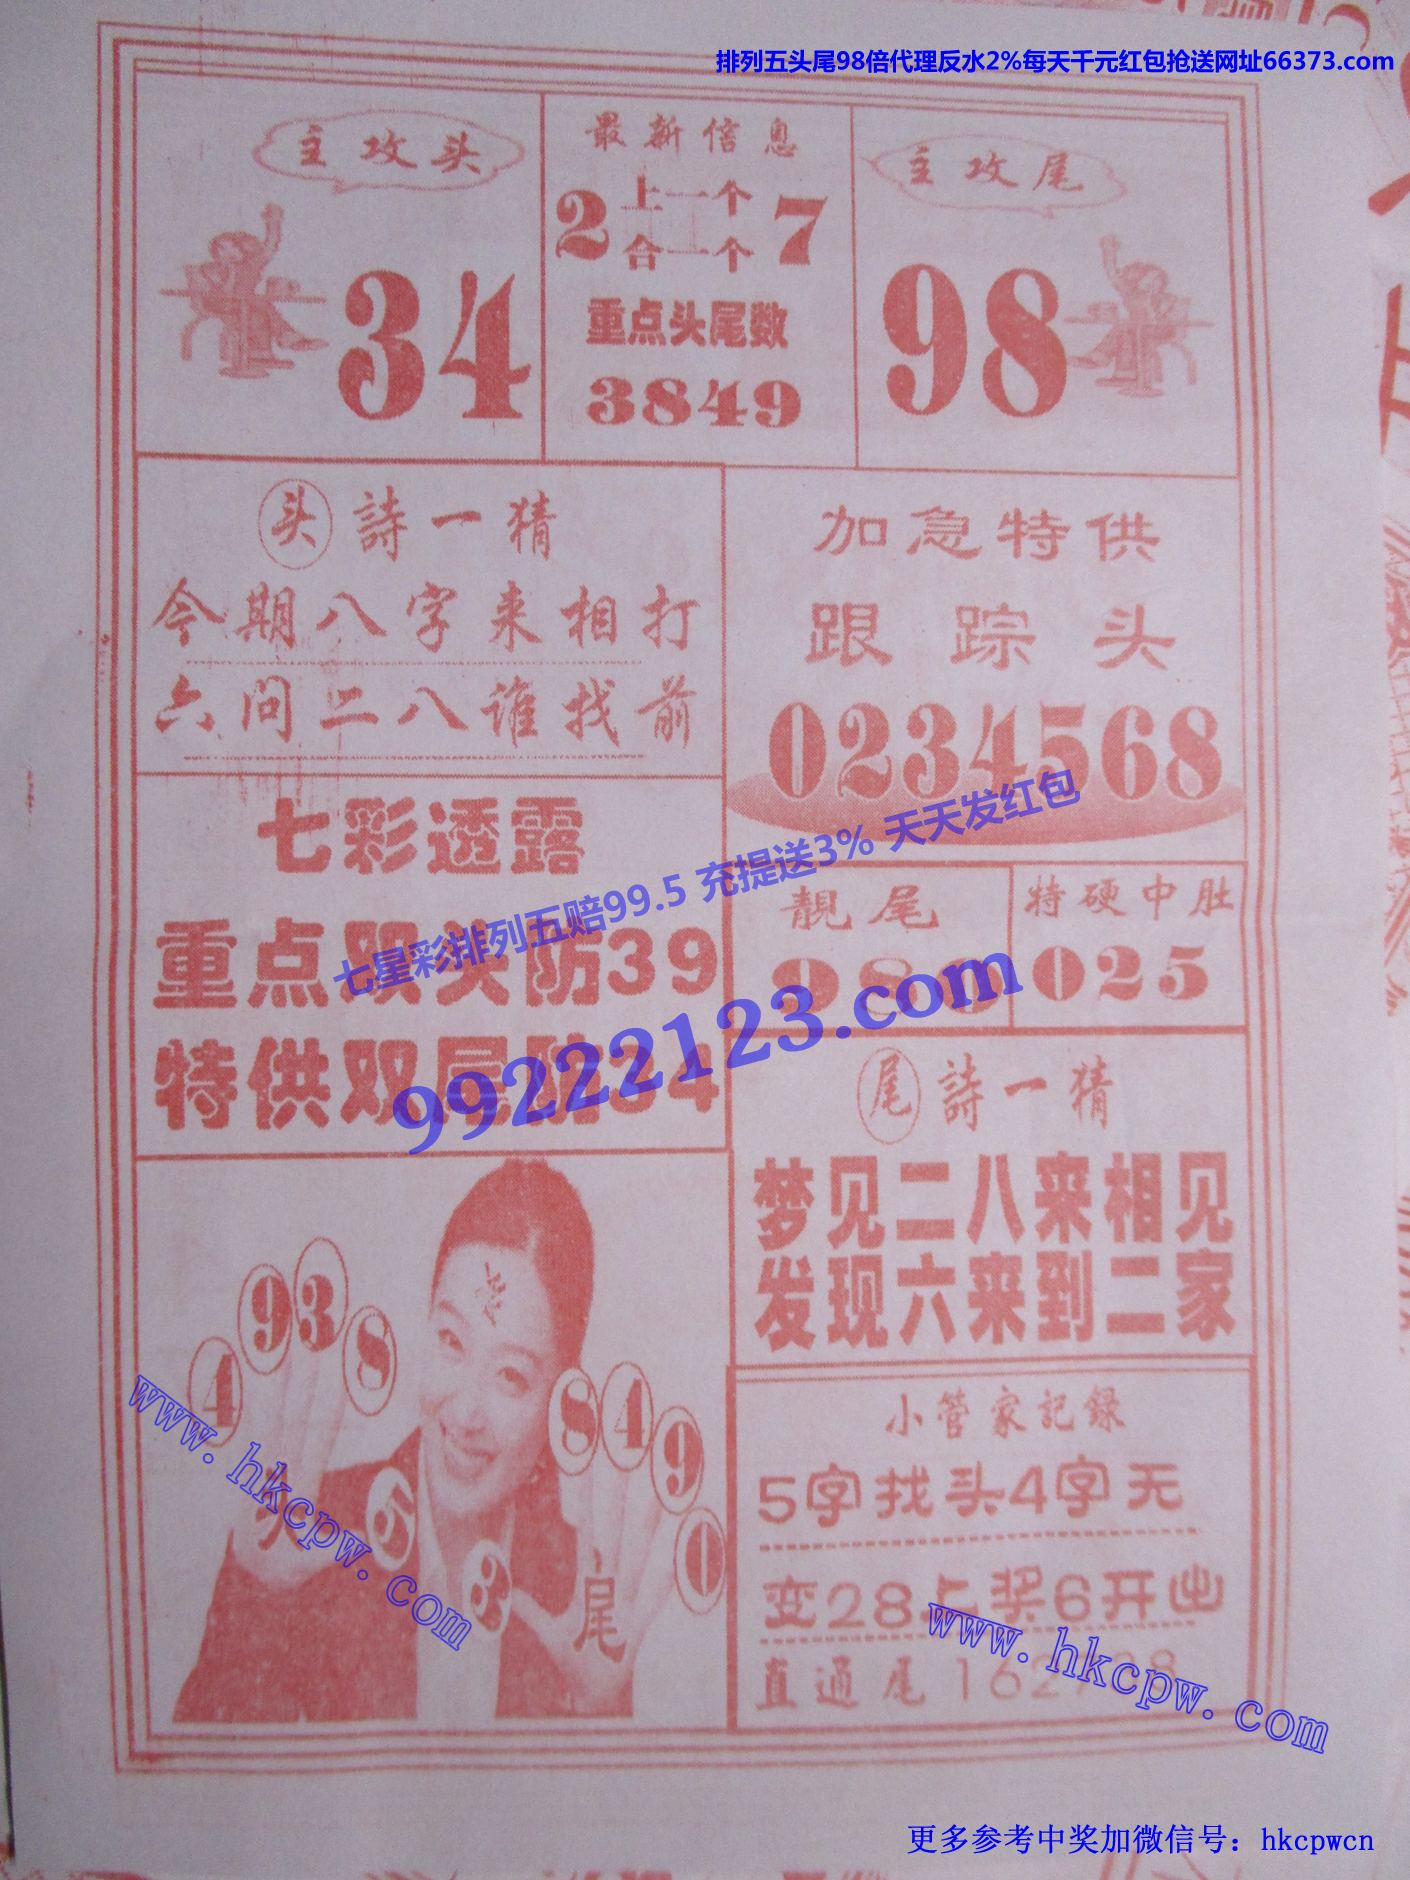 排列五头尾98倍代理反水2%每天千元红包抢送网址66373.com
主攻头
34
最新信息
2 上一个 7
合一个
重点头尾数
3849
主攻尾
98
头 詩一猜
今期八字来相打
六问二八谁找前
加急特供
跟踪头
0234568
七彩透露
重点双头防39
特供双尾防34
七星彩排列五赔99.5 充提送3% 天天发红包
99222123.com
靓尾
980
特硬中肚
025
尾 詩一猜
梦见二八来相见
发现六来到二家
4 9 3 8 5
头
8 4 9 0 3
尾
小管家記録
5字找头4字无
变28上奖6开出
直通尾162
www.hkcpw.com
www.hkcpw.com
更多参考中奖加微信号：hkcpwcn